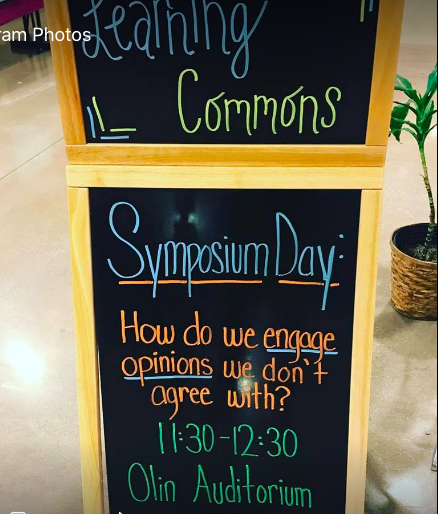 ram Photos
Learning
Commons
Symposium Day:
How do we engage
opinions we don't
agree with?
11:30-12:30
Olin Auditorium